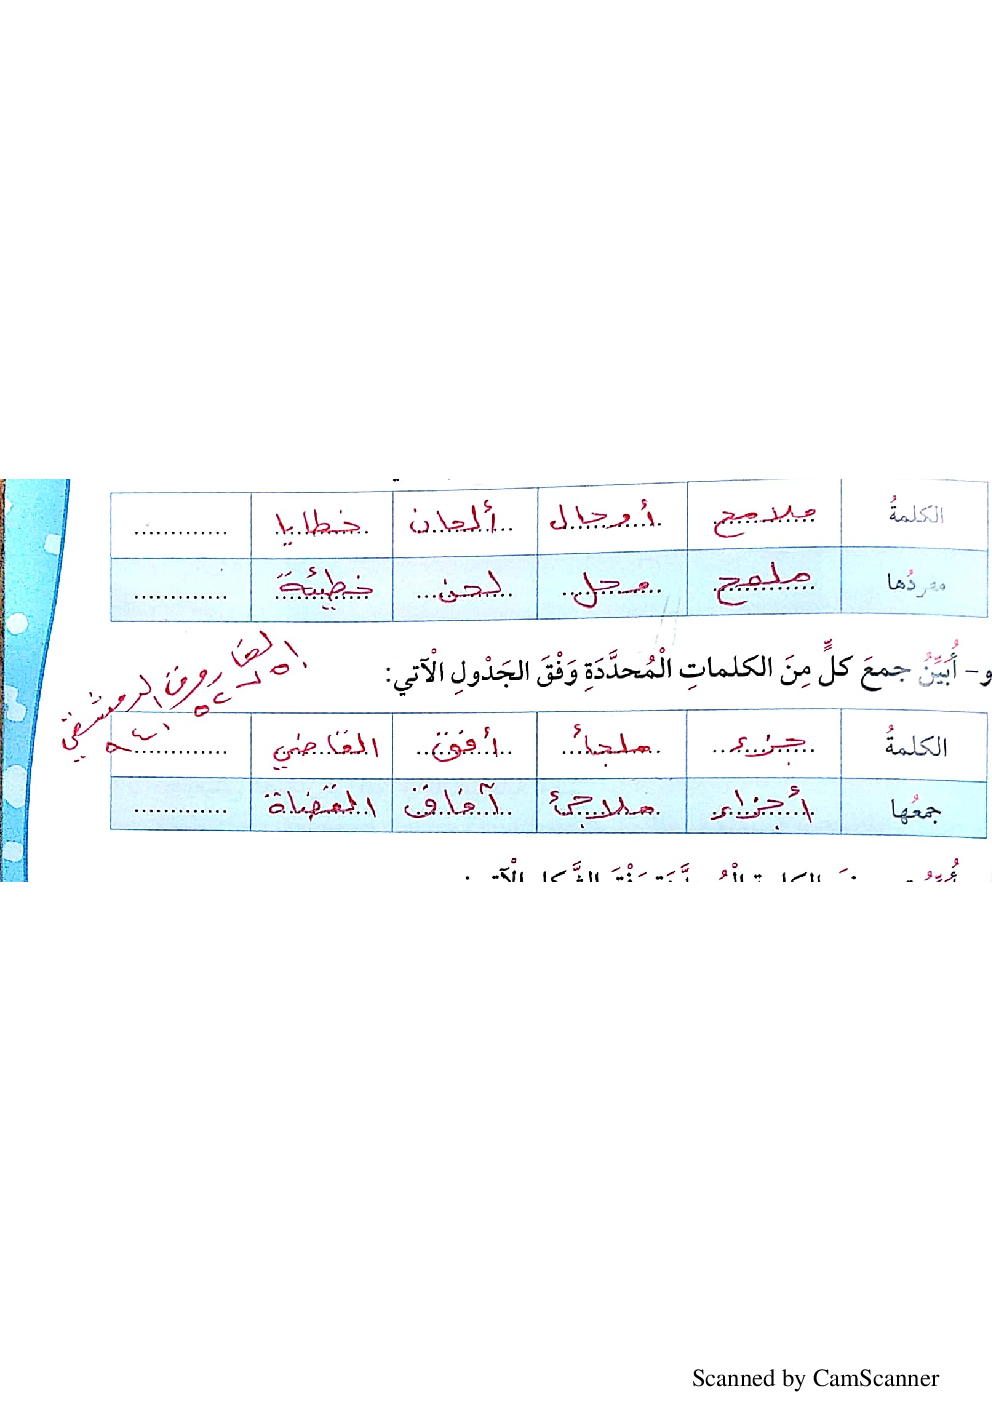 الكلمةُ ملامح أوحال ألحان خطايا ............
مفردُها ملمح وحل لحن خطيئة ............
و- أُبَيِّنُ جمعَ كلٍّ مِنَ الكلماتِ الْمُحدَّدَةِ وَفْقَ الجَدْولِ الْآتي:
الكلمةُ جزء ملجأ أفق القاضي ............
جمعُها أجزاء ملاجئ آفاق القضاة ............
Scanned by CamScanner